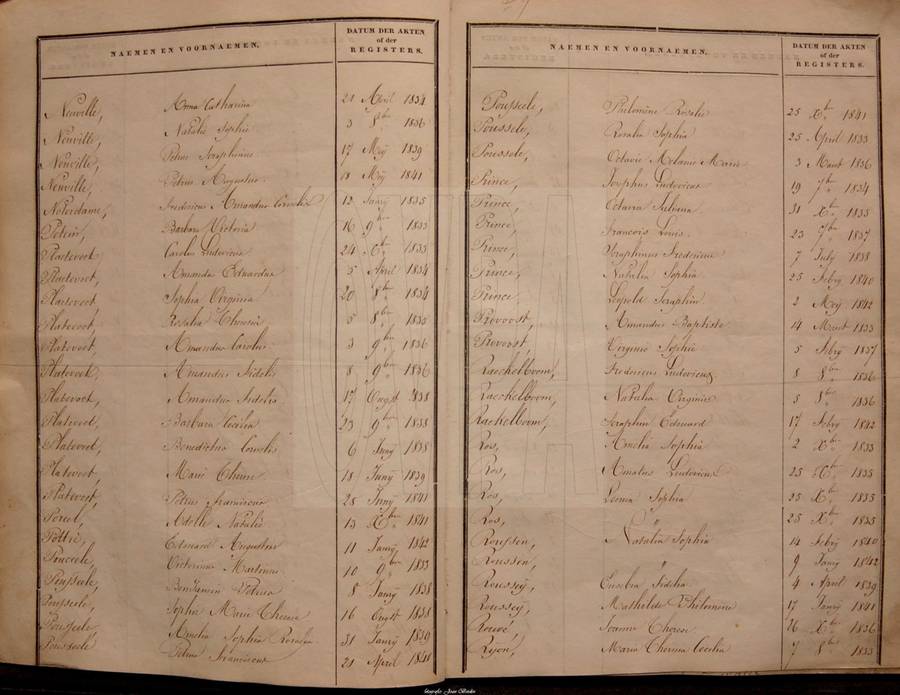 NAEMEN EN VOORNAEMEN. DATUM DER AKTEN of der REGISTERS.
Neuville, Anna Catharina 21 April 1834
Neuville, Natalie Sophie 3 8bre 1836
Neuville, Petrus Seraphinus 17 Mey 1839
Neuville, Petrus Augustus 18 Mey 1841
Noterdame, Fredericus Amandus Cornelis 12 Janry 1835
Barbara Victoria 16 9bre 1833
Platevoet, Carolus Ludovicus 24 Xbre 1833
Platevoet, Amandus Eduardus 5 April 1834
Platevoet Sophia Virginia 20 8bre 1834
Platevoet, Rosalia Theresia 5 8bre 1835
Platevoet, Amandus Carolus 3 9bre 1836
Platevoet, Amandus Fidelis 8 9bre 1836
Platevoet, Amandus Fidelis 17 Ougst 1838
Platevoet, Barbara Cecilia 23 9bre 1838
Platevoet, Benedictus Cornelis 6 1838
Platevoet, Marie Therese 18 1839
Platevoet, Petrus Franciscus 28 1841
Adelle Natalie 13 Xbre 1841
Eduard Augustus 11 Janry 1842
Victorinus 10 9bre 1833
Benjamin Petrus 8 Janry 1838
Pousseele, Sophie Marie Theresia 16 Ougst 1838
Pousseele Amelia Sophia Rosalia 31 Janry 1839
Pousseele Petrus Franciscus 21 April 1841
NAEMEN EN VOORNAEMEN. DATUM DER AKTEN of der REGISTERS.
Pousseele, Philomène Rosalie 25 Xbre 1841
Pousseele, Rosalia Sophia 25 April 1833
Pousseele, Octavie Melanie Marie 3 Maert 1836
Prince, Josephus Ludovicus 19 7bre 1834
Prince, Octavia Juliana 31 Xbre 1835
Prince, Francois Louis 23 1837
Prince, Seraphinus Fredericus 7 July 1838
Prince, Natalia Sophia 25 Febry 1840
Prince Leopold Seraphin 2 Mey 1842
Provoost, Amandus Baptiste 14 Maert 1833
Provoost Virginie Sophie 5 Febry 1837
Raeckelboom, Fredericus Ludovicus 8 8bre 1836
Raeckelboom, Natalia Virginie 5 8bre 1836
Rackelboom, Seraphin Edouard 17 Febry 1842
Ros, Amelia Sophia 2 Xbre 1833
Ros, Amatus Ludovicus 25 Xbre 1835
Ros, Sophia 25 Xbre 1835
Ros, " 25 Xbre 1835
Natalia Sophia 14 Febry 1840
" 9 Janry 1842
Roussey, Eusebia Fidelia 4 April 1839
Roussey, Mathilde Philomene 17 Janry 1841
Joanna Therese 26 Xbre 1836
Ryon, Maria Theresia Cecilia 7 8bre 1833